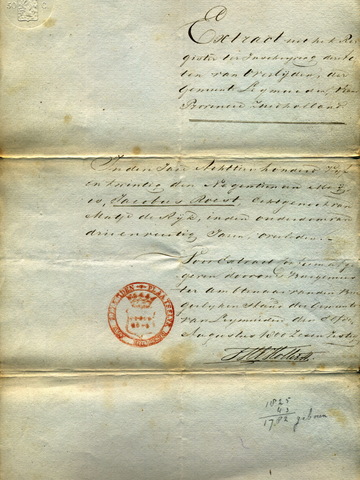 Extract uit het Re-
gister ter Inschrijving der Ac-
ten van Overlijden, der
Gemeente Leymuiden,
Provincie Zuidholland.
In den Jare Achttien honderd Vijf
en twintig den Negentienden
is, Jacobus Roest, Echtgenoot van
Maatje de Rijk, in den ouderdom van
drie en veertig Jaren, overleden.
Voor Extract
geven door den Burgemees-
ter Ambtenaar van den Bur-
gerlijken Stand der Gemeente
van Leymuiden den
Augustus 1800 Zesen
1825
43
1782 geboren